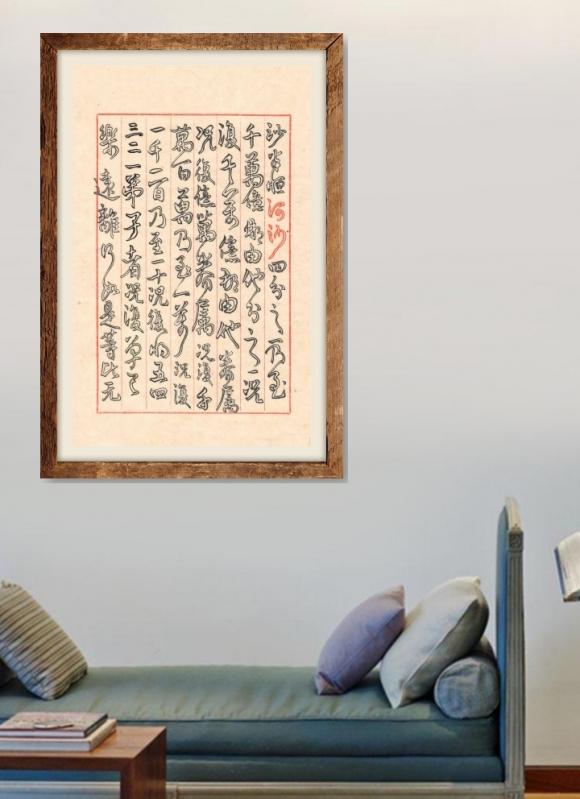 沙半恒河沙四分之一乃至
千萬億那由他分之一況
復千萬億那由他眷屬
況復億萬眷屬況復千
萬百萬乃至一萬況復
一千一百乃至一十況復將五四
三二一弟子者況復單己
樂遠離行如是等比无